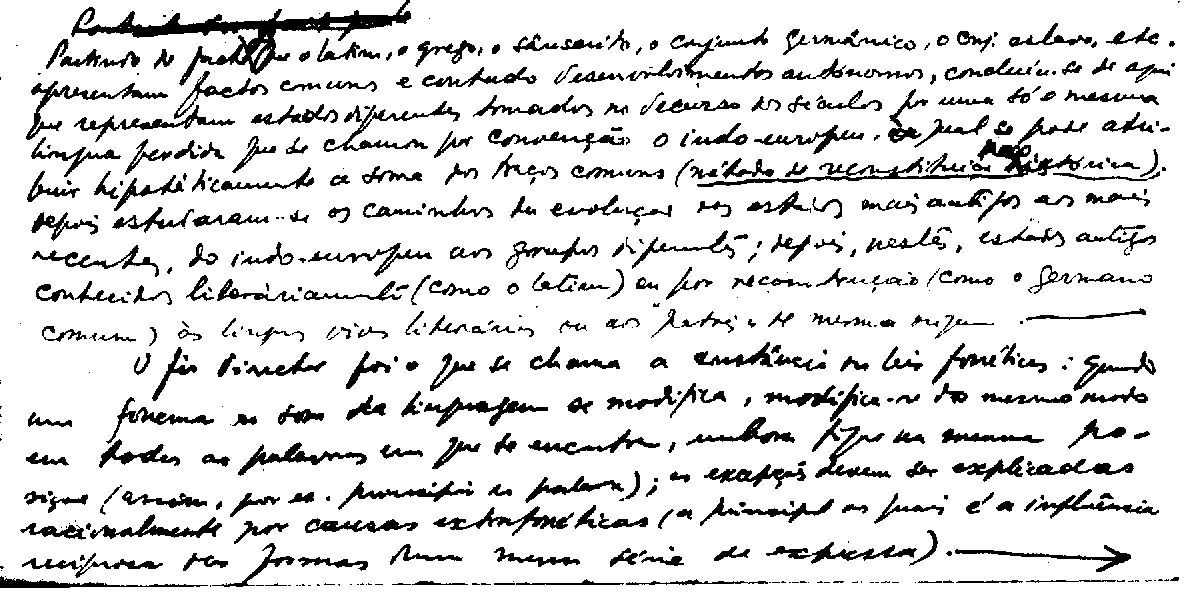 Partindo do facto que o latim, o grego, o sânscrito, o conjunto germânico, o conj. eslavo, etc.
apresentam factos comuns e contudo desenvolvimentos autónomos, concluiu-se de aqui
que representam estados diferentes tomados no decurso dos séculos por uma só e mesma
língua perdida que se chamou por convenção o indo-europeu, ao qual se pode atri-
buir hipotéticamente a soma dos traços comuns (método de reconstituição histórica).
depois estudaram-se os caminhos da evolução dos estados mais antigos aos mais
recentes, do indo-europeu aos grupos diferentes; depois, nestes, estados antigos
conhecidos literáriamente (como o latim) ou por reconstrução (como o germano
comum) às línguas vivas literárias ou aos de mesma origem
O fio director foi o que se chama a constância ou leis fonéticas: quando
um fonema ou som da linguagem se modifica, modifica-se do mesmo modo
em todas as palavras em que se encontra, embora fique na mesma po-
sição (assim, por ex. princípio de palavra); as excepções devem ser explicadas
racionalmente por causas extrafonéticas (a principal das quais é a influência
recíproca das formas numa mesma série de expressão).